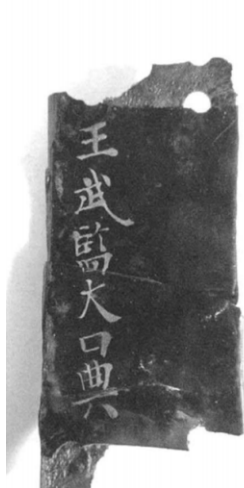 王武監大口典